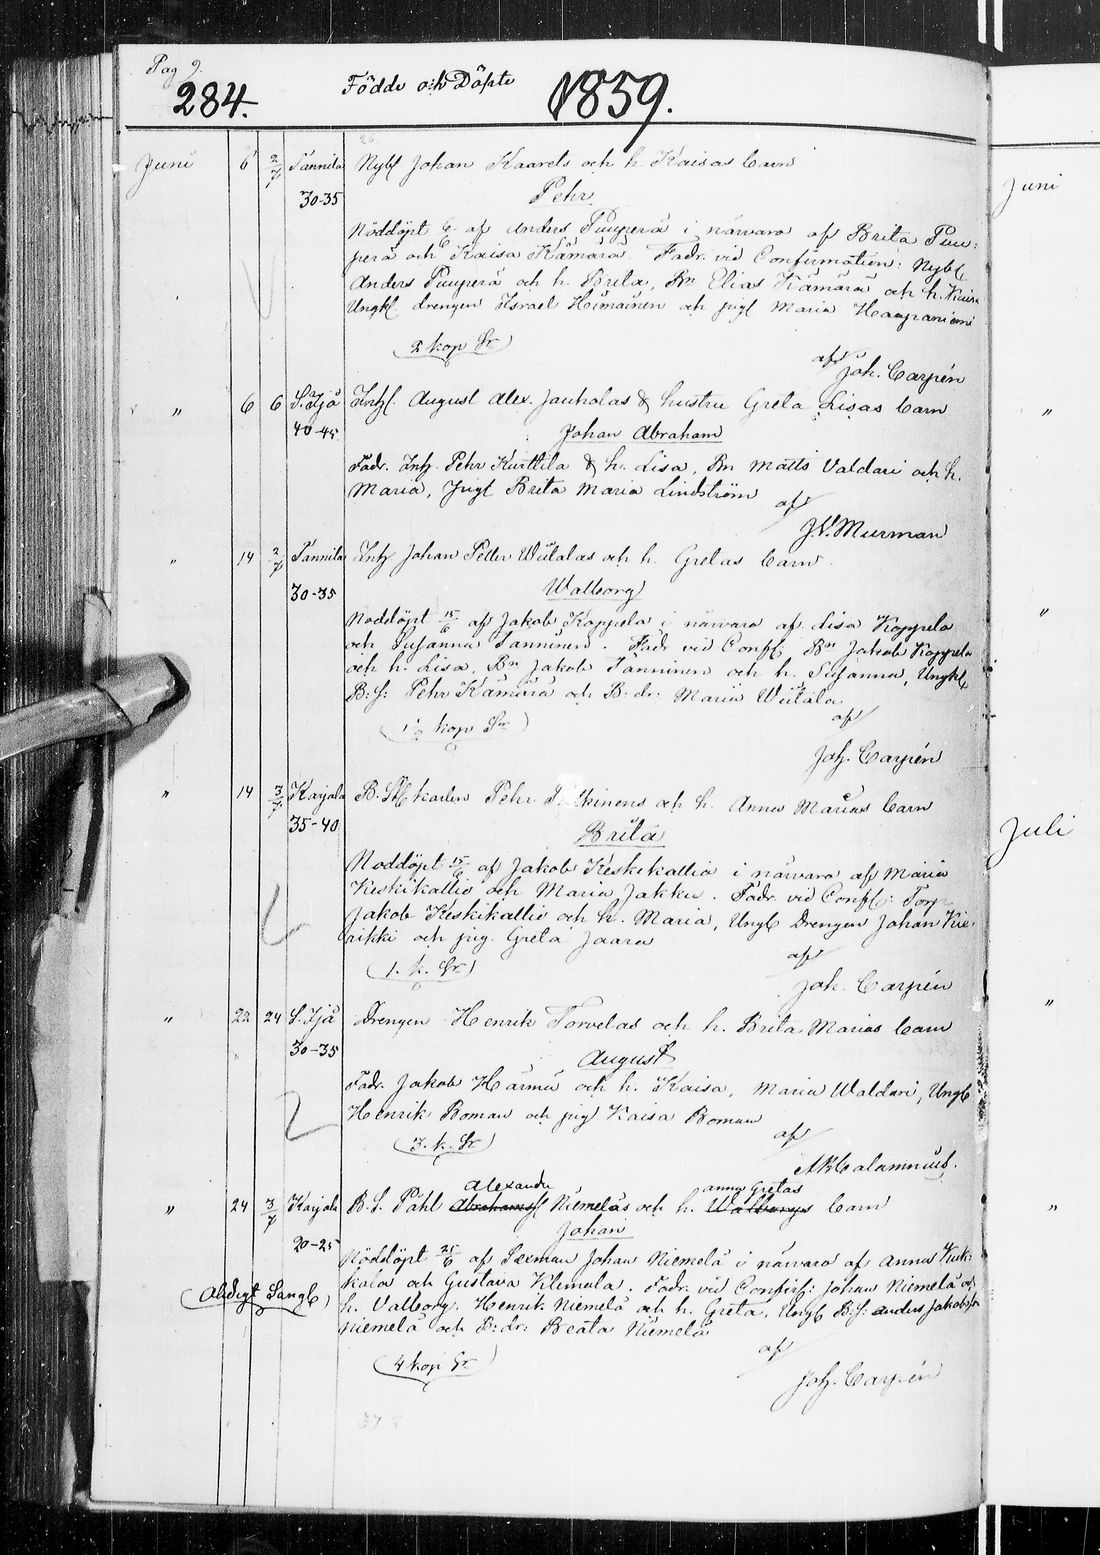 Pag 9.
284. Födde och Döpte 1859.
Juni 6 2/7 Tannila Nybl Johan Kaarets och h. Kaisas barn
30-35 Pehr
Nöddöpt 6/6 af Anders Puuperä i närvaro af Brita Puu-
perä och Kaisa Kämärä. Fadr. vid Confirmation: Nybl.
Anders Puuperä och h. Brita, Bn Elias Kämärä och h. Kaisa
Ungkl. drengen Israel Himainen och pigl Maria Haapaniemi
(2 kop Sr) af
Joh. Carpén
" 6 6 S. Ijå Inhl. August Alex. Jauholas & hustru Greta Lisas barn
40-45 Johan Abraham
Fadr. Inh. Pehr Kurttila & h. Lisa, Bn Matts Valdari och h.
Maria, Jugl Brita Maria Lindström
af
J.V. Murman
" 14 2/7 Tannila Inh Johan Petter Wiitalas och h. Gretas barn
30-35 Walborg
Nöddöpt 15/6 af Jakob Koppela i närvaro af Lisa Koppela
och Susanna Tanninen. Fadr vid Conf: Bn Jakob Koppela
och h. Lisa, Bn Jakob Tanninen och h. Susanna, Ungkl
B: S: Pehr Kämärä och B: dr: Maria Wiitala
(1 1/2 kop Sr) af
Joh. Carpén
" 14 3/7 Karjala B. St karlen Pehr kinens och h. Anna Marias barn
35-40 Brita
Nöddöpt 15/6 af Jakob Keskikallio i närvaro af Maria
Keskikallio och Maria Jakku. Fadr vid Conf: Torp
Jakob Keskikallio och h. Maria, Ungl Drengen Johan Kie-
rikki och pig. Greta Jaara
(1. k. Sr) af
Joh. Carpén
" 22 24 S. Ijå Drengen Henrik Torvelas och h. Brita Marias barn
30-35 August
Fadr. Jakob Härmä och h. Kaisa, Maria Waldari, Ungl
Henrik Boman och pigl Kaisa Boman
(3. k. Sr) af
Calamnius.
Alexander anna Gretas
" 24 3/7 Karjala B. S. Påhl Abrahamss Niemeläs och h. Walborgs barn
20-25 Johan
Nöddöpt 25/6 af Johan Niemelä i närvaro af Anna Kuk-
kola och Gustava Klemola. Fadr. vid Confirf: Johan Niemelä och
h. Valborg. Henrik Niemelä och h. Greta, Ungl B. S: anders Jakobsson
Niemelä och B: dr: Beata Niemelä
(4 kop Sr) af
Joh. Carpén
Juni
"
"
Juli
"
"